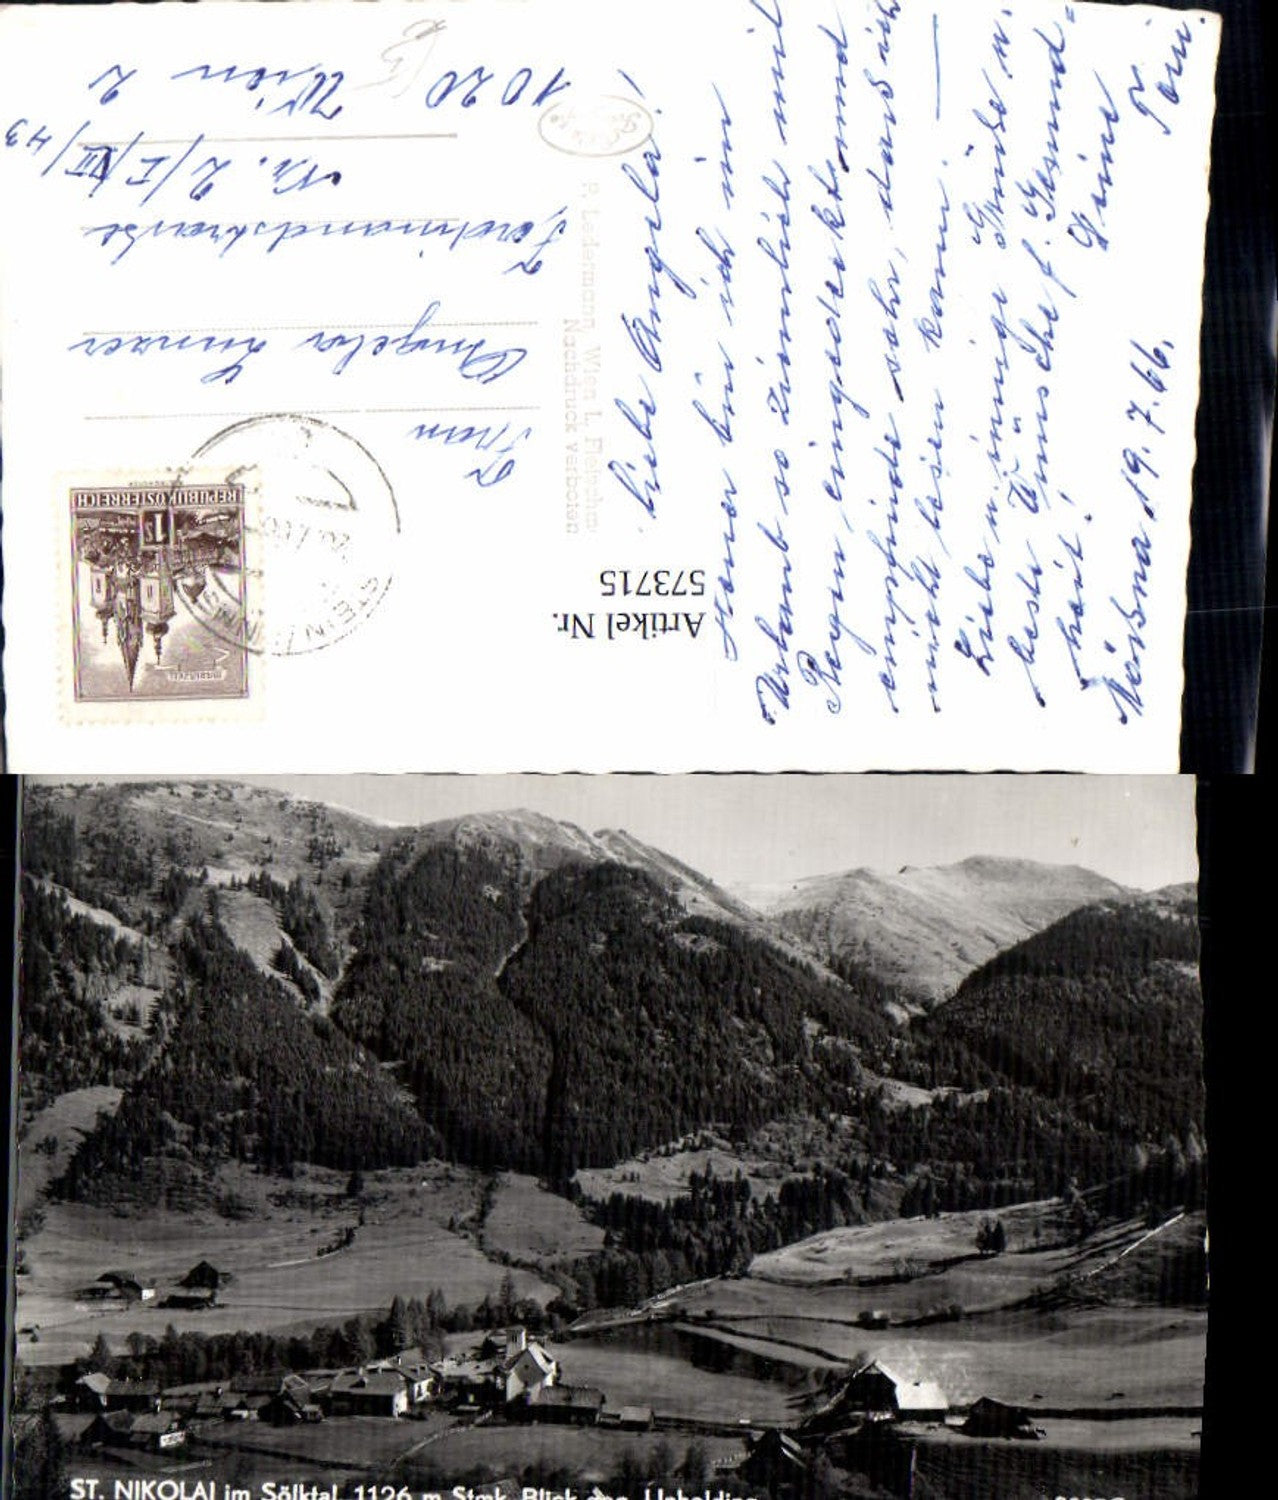 Liebe Angela!
Heuer bin ich im
Urlaub so ziemlich mit
Regen eingedeckt und
empfinde sehr, dass ich
nicht lesen kann. —
Liebe u. innige Grüße u.
beste Wünsche f. Gesund-
heit!
Deine
Toni.
19.7.66.
Frau
Angela
Nr. 2/I/VII/43
1020 Wien 2
P. Ledermann, Wien I., Fleischm
Nachdruck verboten
Artikel Nr.
573715
REPUBLIK ÖSTERREICH
1S
MARIAZELL
STEIN
ST. NIKOLAI im Sölktal, 1126 m Stmk. Blick geg.